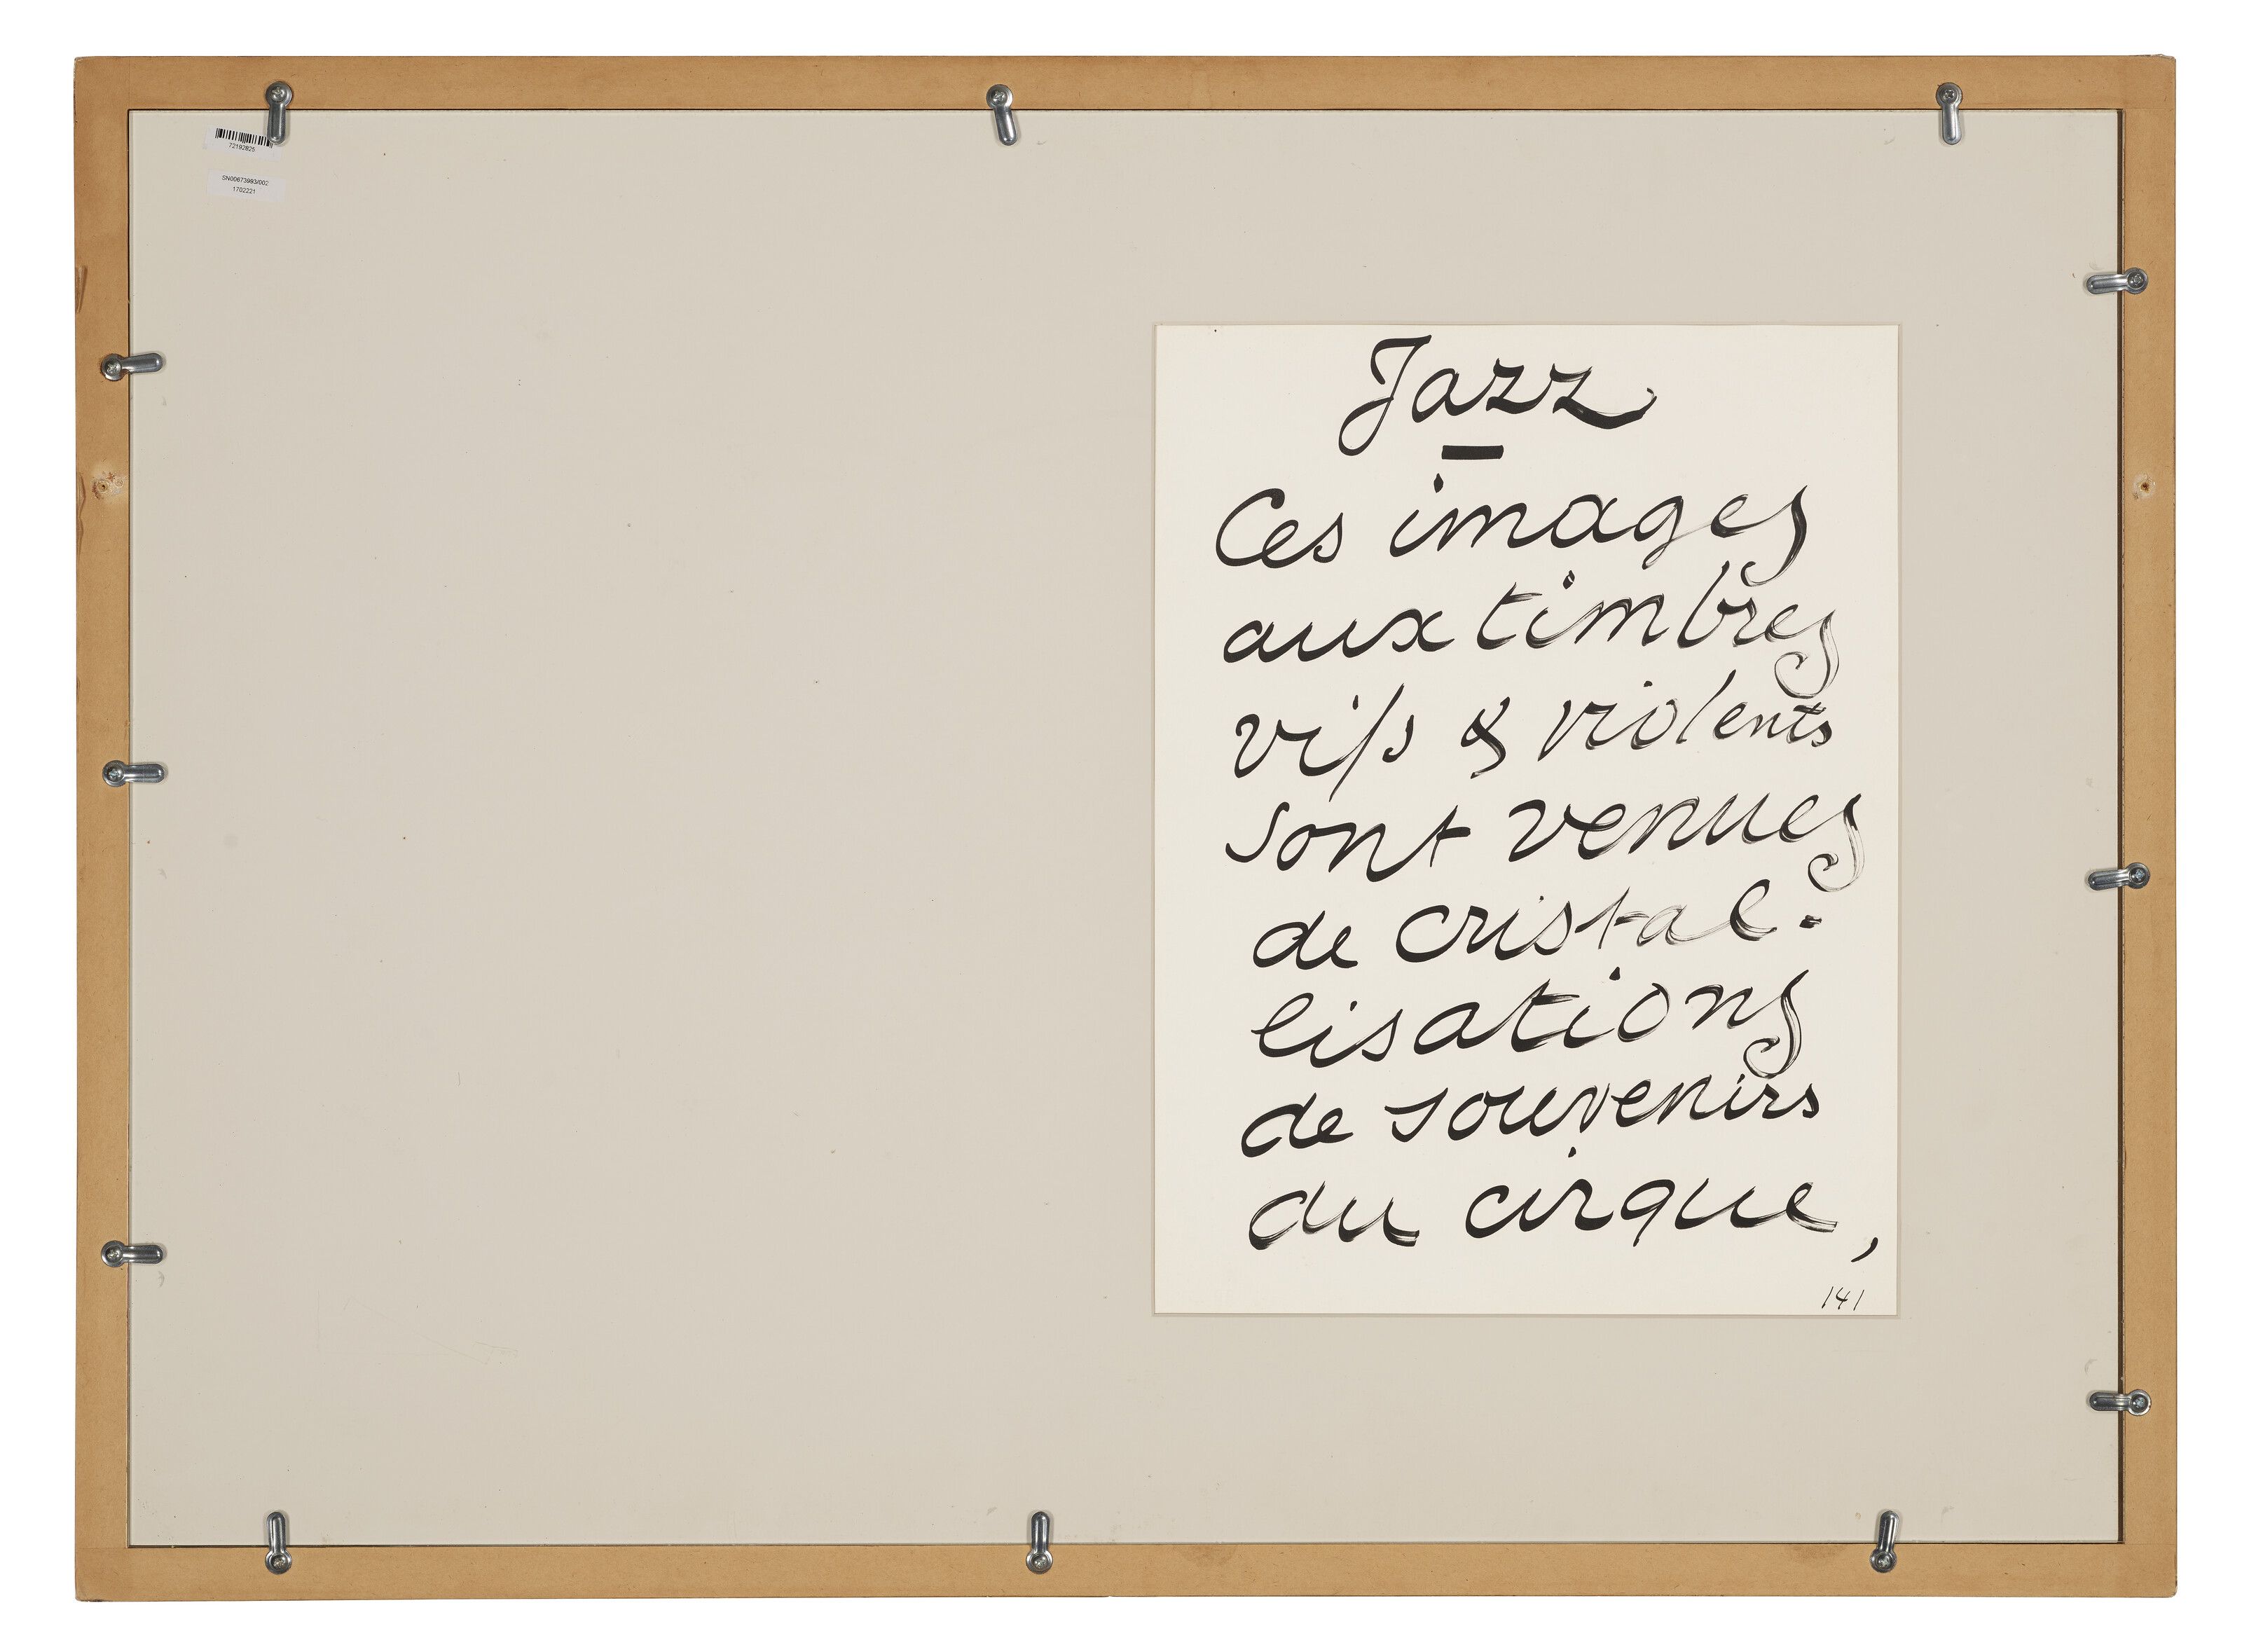 72192825
SN00673993/002
1702221
Jazz
Ces images
aux timbres
vifs & violents
sont venues
de cristal-
lisations
de souvenirs
du cirque,
141